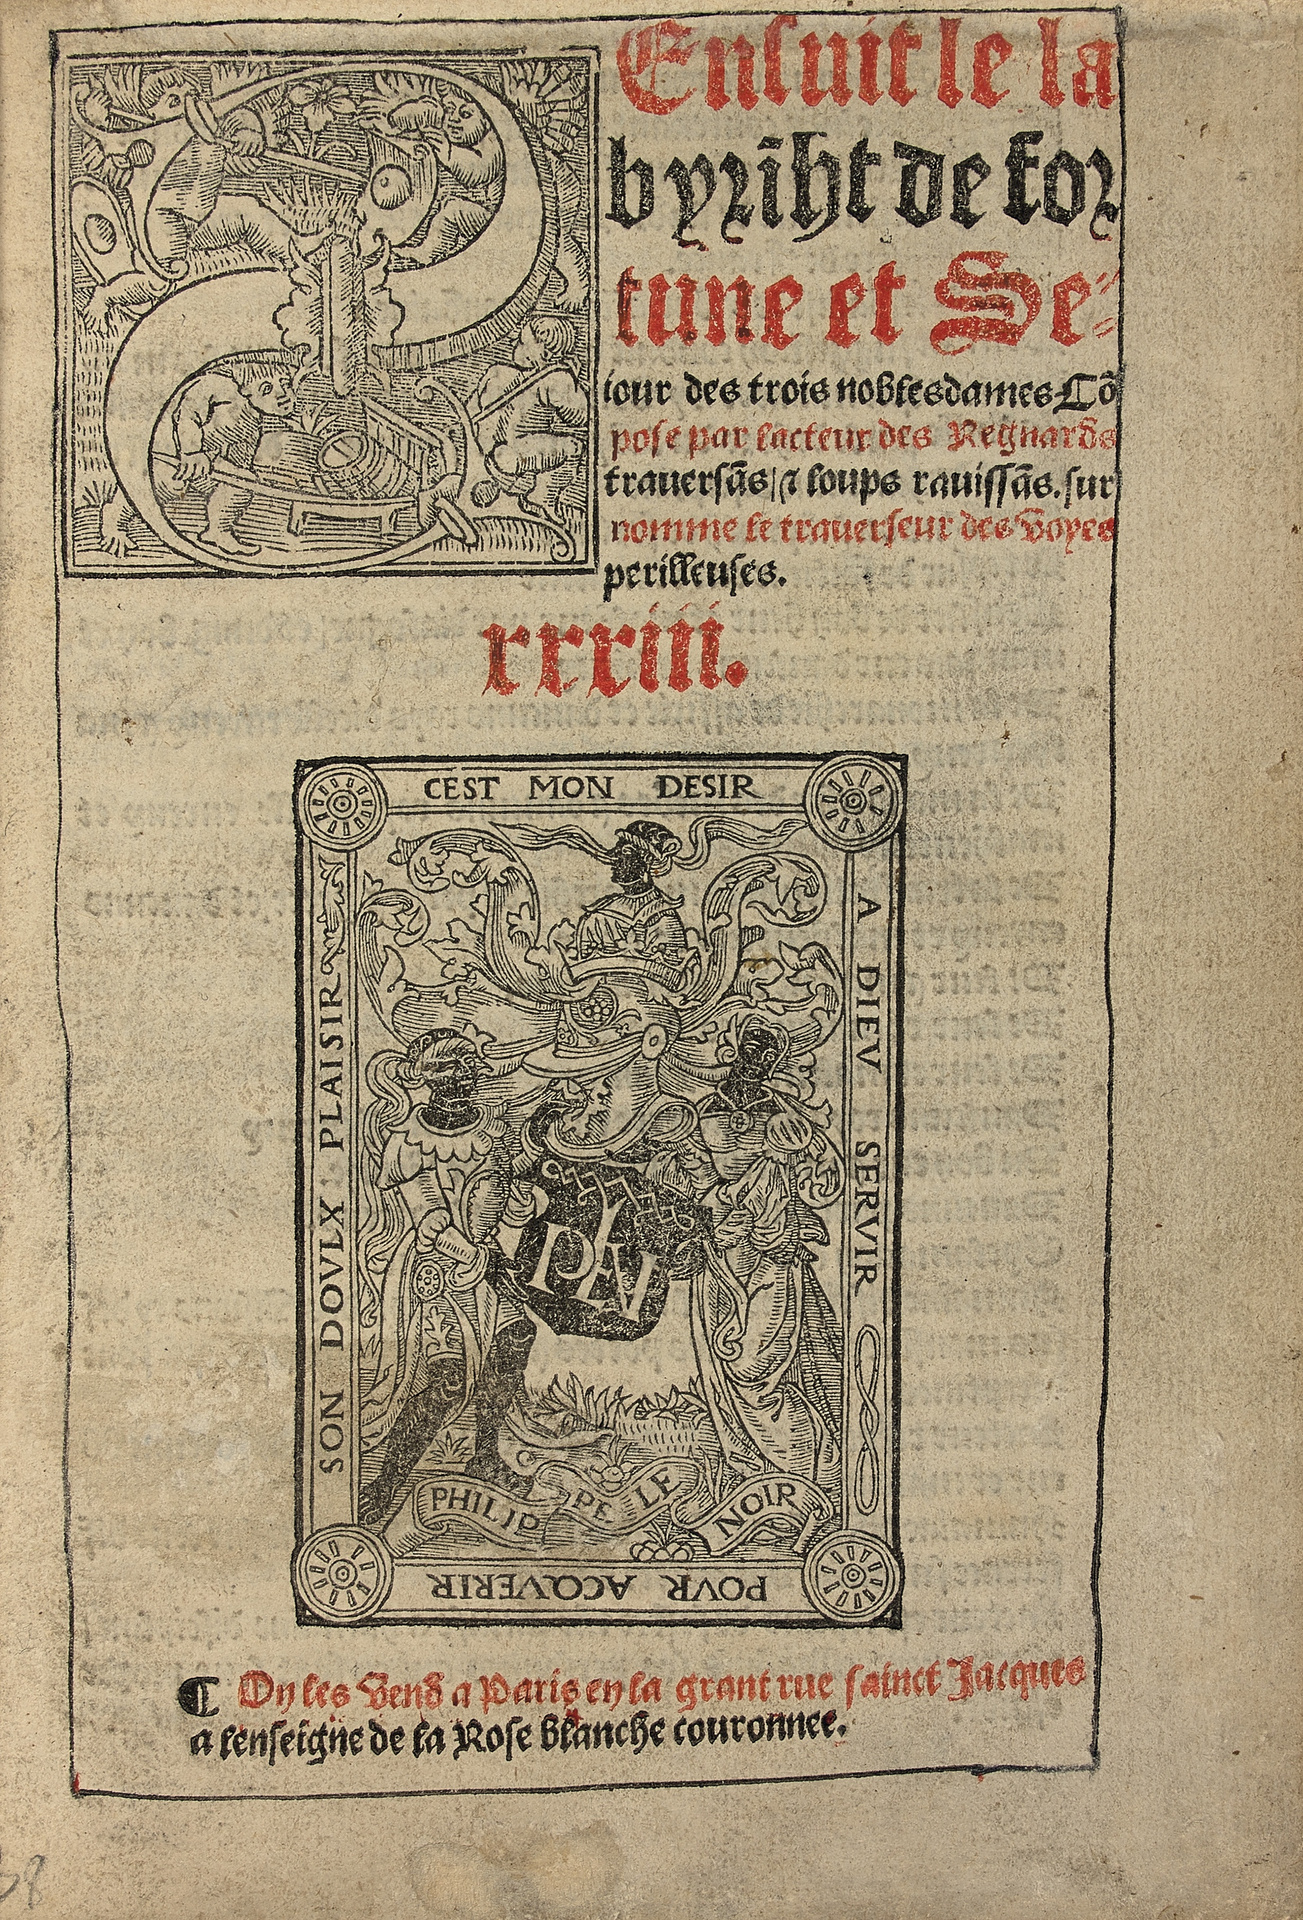 S
Ensuit le la
byrīht de for
tune et Se⸗
iour des trois nobles dames Cō
pose par lacteur des Regnards
trauersās/⁊ loups rauissās. sur
nomme le trauerseur des voyes
perilleuses.
xxxiii.
CEST MON DESIR
A DIEV SERVIR
POVR ACQVERIR
SON DOVLX PLAISIR
PLN
PHILIPPE LE NOIR
¶ On les vend a Paris en la grant rue sainct Jacques
a lenseigne de la Rose blanche couronnee.